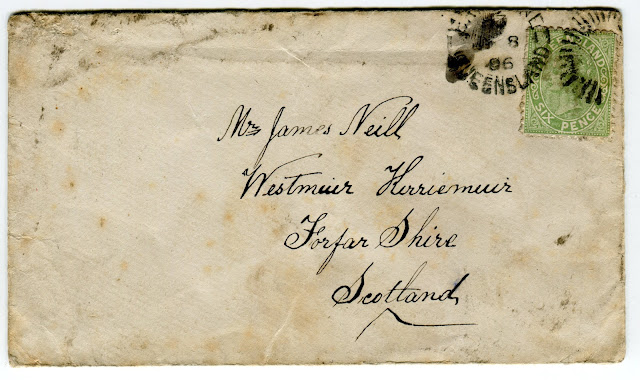 8
96
QUEENSLAND
QUEENSLAND
SIX PENCE
Mrs James Neill
Westmuir Kirriemuir
Forfar Shire
Scotland